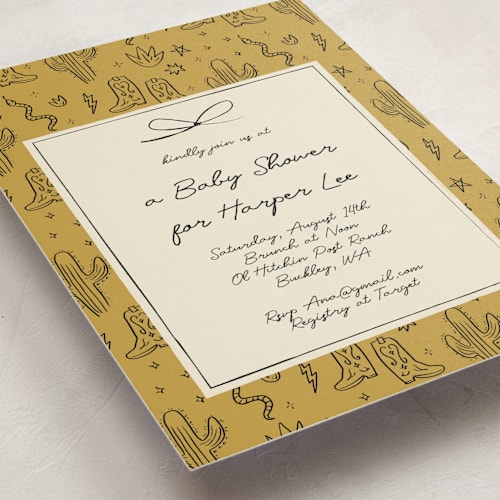 kindly join us at
a Baby Shower
for Harper Lee
Saturday, August 14th
Brunch at Noon
Ol Hitchin Post Ranch
Buckley, WA
Rsvp Ana@gmail.com
Registry at Target